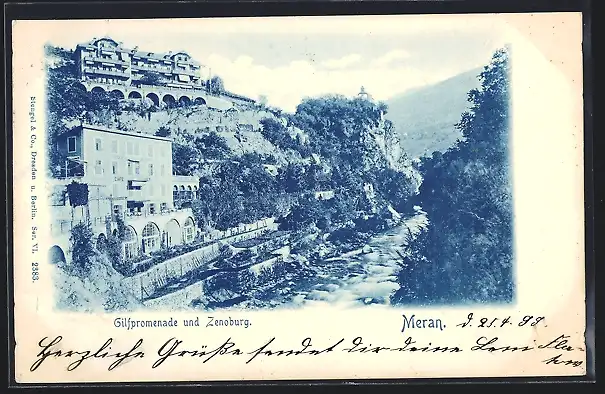 Stengel & Co., Dresden u. Berlin. Ser. VI. 2383.
Gilfpromenade und Zenoburg.
Meran. d 21.4.98
Herzliche Grüsse sendet dir deine Leni